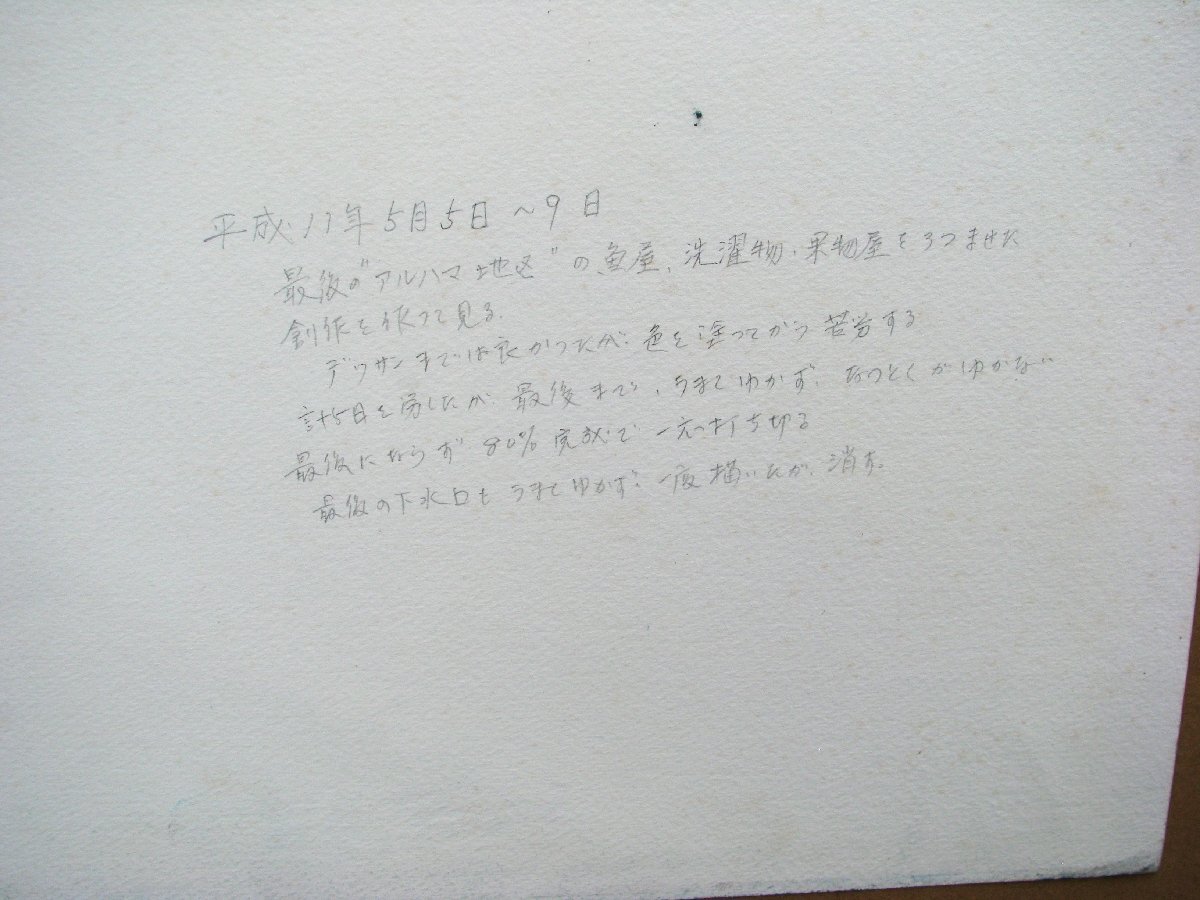 平成17年5月5日～9日
最後の"アルハマ地区"の魚屋、洗濯物、果物屋を3つませた
創作を作って見る.
デッサンまでは良かったが、色を塗ってから苦労する
計5日を労したが 最後まで、うまくゆかず、なっとくがゆかない
最後にならず 80%完成で 一応打ち切る
最後の下水口も うまくゆかず、一度描いたが、消す。